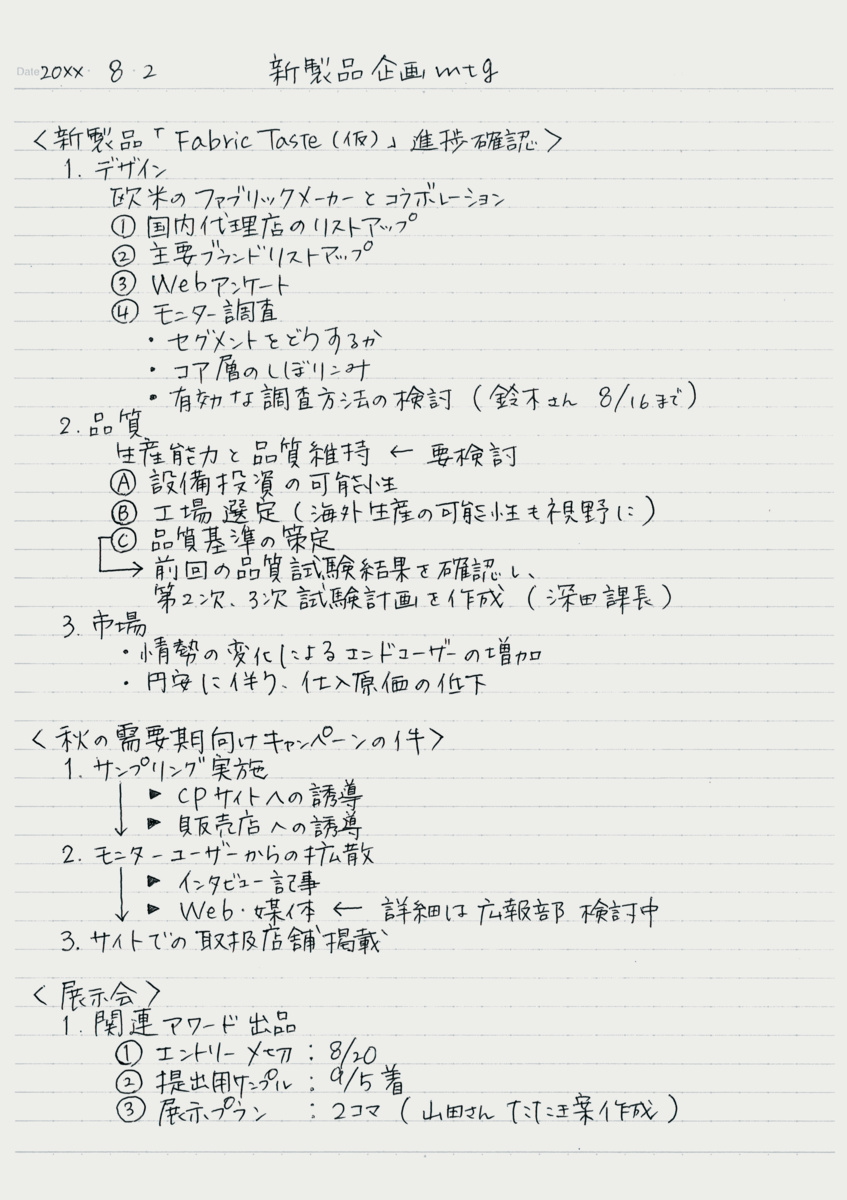 Date 20XX・8・2 新製品企画mtg
<新製品「Fabric Taste(仮)」進捗確認>
1. デザイン
欧米のファブリックメーカーとコラボレーション
① 国内代理店のリストアップ
② 主要ブランドリストアップ
③ Webアンケート
④ モニター調査
・セグメントをどうするか
・コア層のしぼりこみ
・有効な調査方法の検討(鈴木さん 8/16まで)
2. 品質
生産能力と品質維持 ← 要検討
Ⓐ 設備投資の可能性
Ⓑ 工場選定(海外生産の可能性も視野に)
Ⓒ 品質基準の策定
→ 前回の品質試験結果を確認し、
第2次、3次試験計画を作成(深田課長)
3. 市場
・情勢の変化によるエンドユーザーの増加
・円安に伴り、仕入原価の低下
<秋の需要期向けキャンペーンの件>
1. サンプリング実施
▶ CPサイトへの誘導
▶ 販売店への誘導
2. モニターユーザーからの拡散
▶ インタビュー記事
▶ Web・媒体 ← 詳細は広報部検討中
3. サイトでの取扱店舗掲載
<展示会>
1. 関連アワード出品
① エントリー〆切:8/20
② 提出用サンプル:9/5着
③ 展示プラン:2コマ(山田さん たたき案作成)